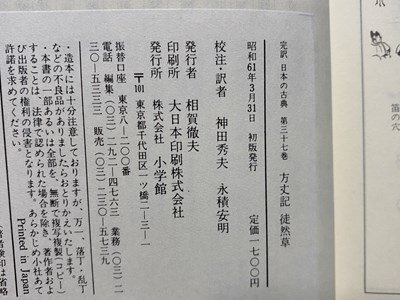 完訳 日本の古典 第三十七巻 方丈記 徒然草
昭和61年3月31日 初版発行
定価一七〇〇円
校注・訳者 神田秀夫 永積安明
発行者 相賀徹夫
印刷所 大日本印刷株式会社
発行所 株式会社 小学館
〒101 東京都千代田区一ツ橋二―三―一
振替口座 東京八―二〇〇番
電話 編集(〇三)二九一―四七六三 業務(〇三)二
三〇―五三三三 販売(〇三)二三〇―五七三九
・造本には十分注意しておりますが、万一、落丁・乱丁
などの不良品がありましたらおとりかえいたします。
・本書の一部あるいは全部を、無断で複写複製(コピー)
することは、法律で認められた場合を除き、著作者およ
び出版者の権利の侵害となります。あらかじめ小社あて
許諾を求めてください。
Printed in Japan
著者検印は省略
笛の穴